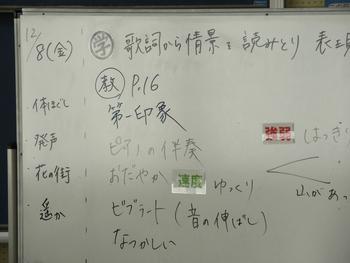 12/8(金)
学 歌詞から情景を読みとり 表
教 P.16
第一印象
体ほぐし
発声
花の街
遥か
ピアノの伴奏
おだやか 速度 ゆっくり
ビブラート(音の伸ばし)
なつかしい
強弱 はっきり
山があっ